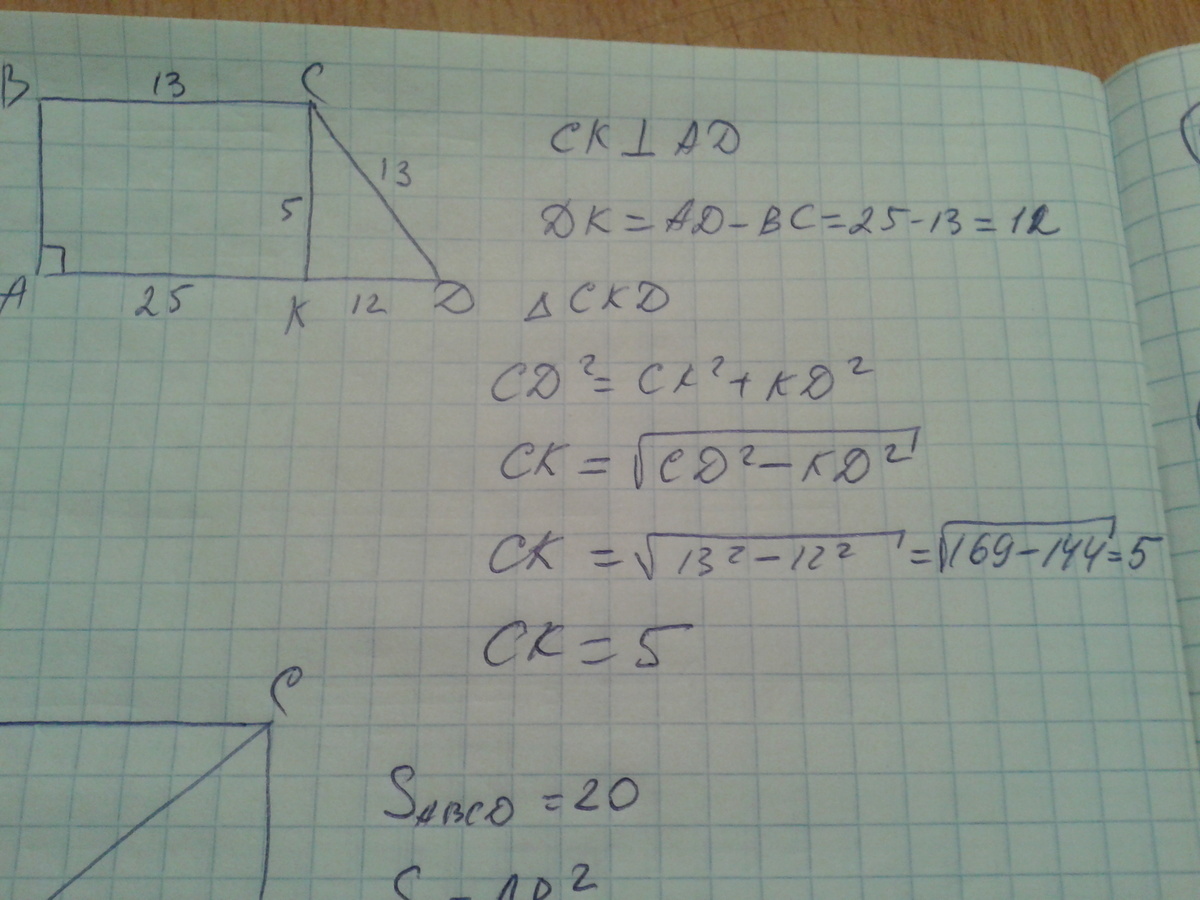 B 13 C
13
5
A 25 K 12 D
CK ⊥ AD
DK = AD - BC = 25 - 13 = 12
△ CKD
CD² = CK² + KD²
CK = √(CD² - KD²)
CK = √(13² - 12²) = √(169 - 144) = 5
CK = 5
C
S_ABCD = 20